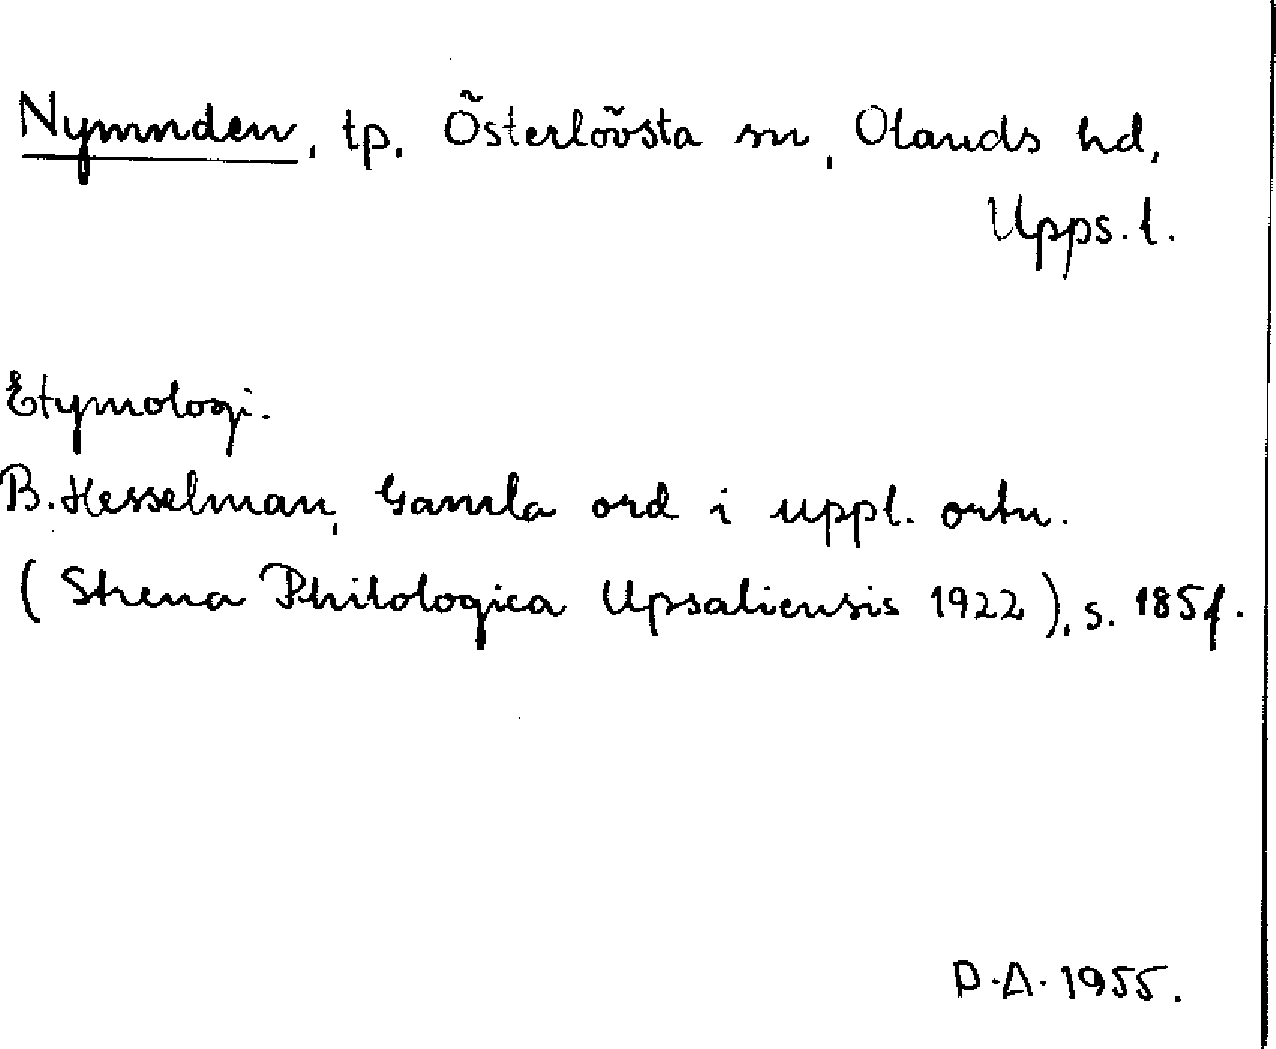 Nymnden, tp. Österlövsta sn, Olands hd,
Upps. l.
Etymologi.
B. Hesselman, Gamla ord i uppl. ortn.
(Strena Philologica Upsaliensis 1922), s. 185 f.
D.A. 1955.